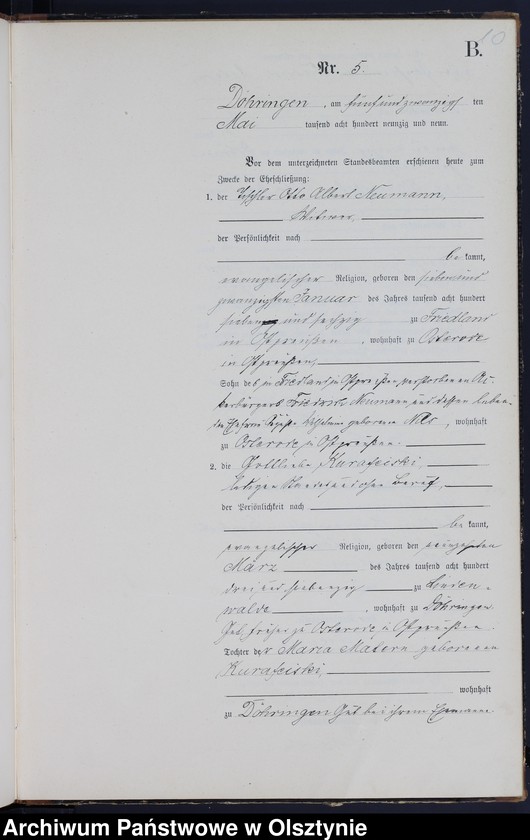 10
B.
Nr. 5.
Döhringen, am fünfundzwanzigsten
Mai tausend acht hundert neunzig und neun.
Vor dem unterzeichneten Standesbeamten erschienen heute zum
Zwecke der Eheschließung:
1. der Tischler Otto Albert Neumann,
Witwer,
der Persönlichkeit nach
be kannt,
evangelischer Religion, geboren den siebenund
zwanzigsten Januar des Jahres tausend acht hundert
sieben und sechzig zu Friedland
in Ostpreußen, wohnhaft zu Osterode
in Ostpreußen,
Sohn des in Friedland in Ostpreußen verstorbenen Ac-
kerbürgers Friedrich Neumann und dessen
Ehefrau geborene, wohnhaft
zu Osterode in Ostpreußen.
2. die Gottliebe Kurafeiski,
Beruf,
der Persönlichkeit nach
be kannt,
evangelischer Religion, geboren den
März des Jahres tausend acht hundert
drei und siebenzig zu Linden-
walde, wohnhaft zu Döhringen
Gut, früher zu Osterode in Ostpreußen.
Tochter der Maria Matern geborenen
Kurafeiski,
wohnhaft
zu Döhringen Gut bei ihrem Ehemann.
Archiwum Państwowe w Olsztynie